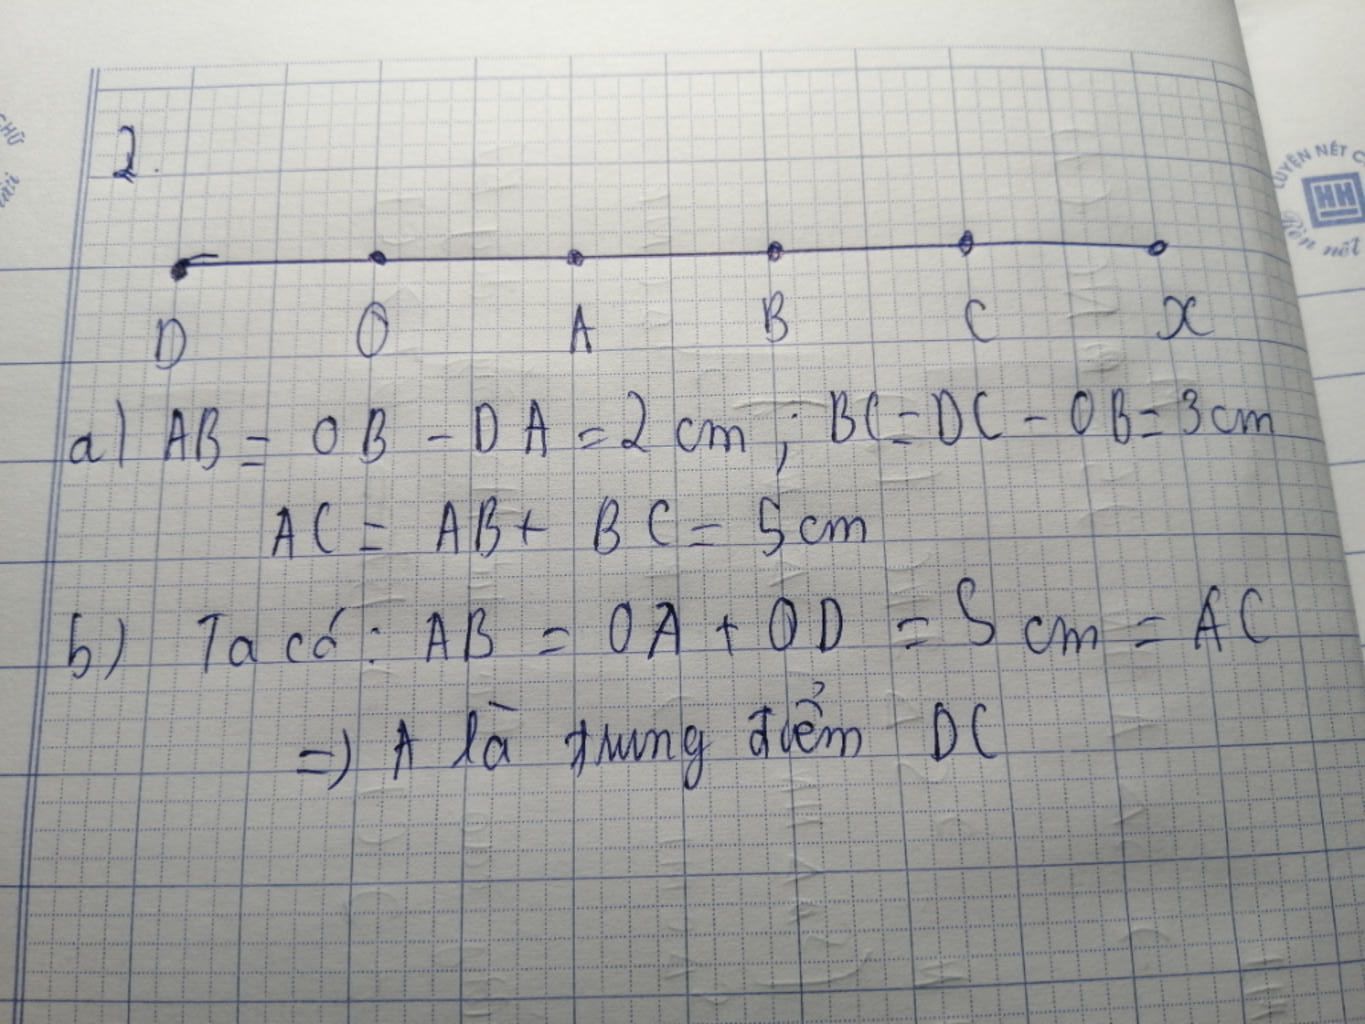 2.
D O A B C x
a) AB = OB - DA = 2 cm ; BC = DC - OB = 3 cm
AC = AB + BC = 5 cm
b) Ta có : AB = OA + OD = 5 cm = AC
=) A là trung điểm DC
LUYỆN NÉT C
HH
nết
CHỮ